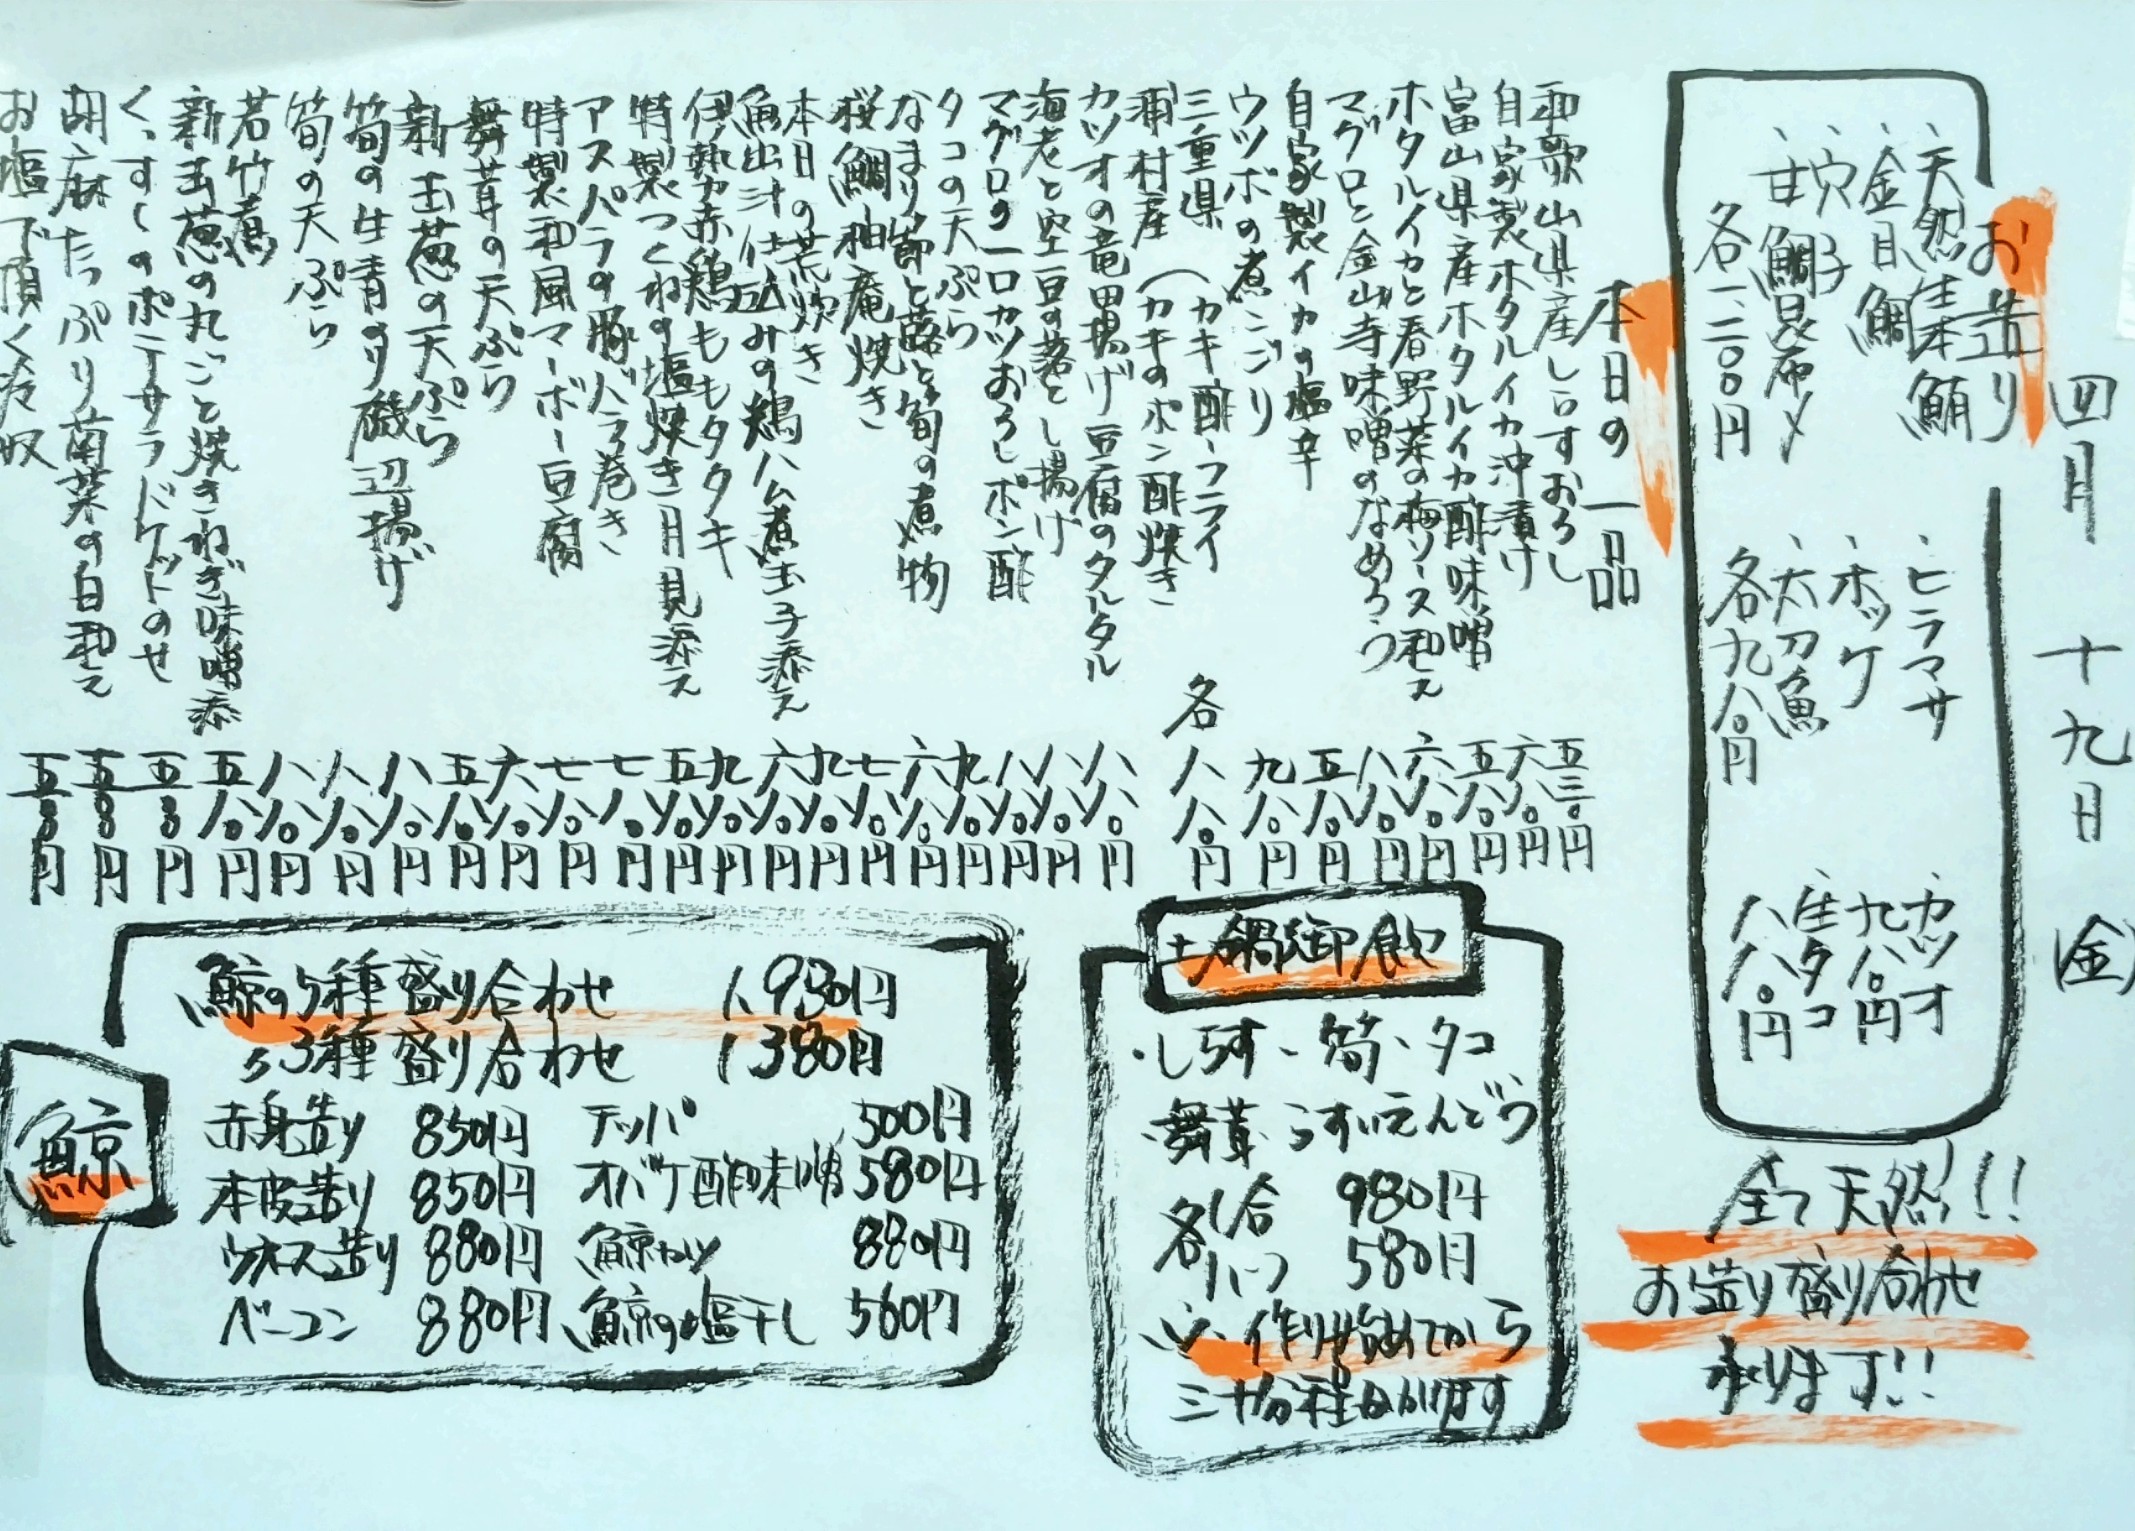 四月 十九日 (金)
お造り
・天然生本鮪
・金目鯛
・穴子
・甘鯛昆布〆
各一、二〇〇円
・ヒラマサ
・ホッケ
・太刀魚
各九八〇円
カツオ
九八〇円
生タコ
八八〇円
全て天然!!!
お造り盛り合わせ
承ります!!
本日の一品
和歌山県産しらすおろし 五三〇円
自家製ホタルイカ沖漬け 六八〇円
富山県産ホタルイカ酢味噌 五八〇円
ホタルイカと春野菜の梅ソース和え 六八〇円
マグロと金山寺味噌のなめろう 八八〇円
自家製イカの塩辛 五八〇円
ウツボの煮こごり 九八〇円
三重県 (カキ酢・フライ
浦村産 (カキのポン酢焼き 各 八八〇円
カツオの竜田揚げ豆腐のタルタル 八八〇円
海老と空豆の落とし揚げ 八八〇円
マグロの一口カツおろしポン酢 八八〇円
タコの天ぷら 九八〇円
なまり節と蕗と筍の煮物 六八〇円
桜鯛柚庵焼き 七八〇円
本日の荒炊き 九八〇円
魚出汁仕込みの鶏ハム煮玉子添え 六八〇円
伊勢赤鶏ももタタキ 九八〇円
特製つくねの塩焼き月見添え 五八〇円
アスパラの豚バラ巻き 七八〇円
特製和風マーボー豆腐 七八〇円
舞茸の天ぷら 六八〇円
新玉葱の天ぷら 五八〇円
筍の生青のり磯辺揚げ 八八〇円
筍の天ぷら 八八〇円
若竹煮 八八〇円
新玉葱の丸ごと焼きねぎ味噌添 五八〇円
くんすしのポテサラドケットのせ 五〇〇円
胡麻たっぷり菊菜の白和え 五〇〇円
お塩で頂く冷奴 五〇〇円
土鍋御飯
・しらす・筍・タコ
・舞茸・うすいえんどう
各 1合 980円
ハーフ 580円
※作り始めてから
三十分程かかります
鯨
鯨の5種盛り合わせ 1,930円
〃3種盛り合わせ 1,380円
赤身造り 850円 テッパ 500円
本皮造り 850円 オバケ酢味噌 580円
ウネス造り 880円 鯨カツ 880円
ベーコン 880円 鯨の塩干し 560円